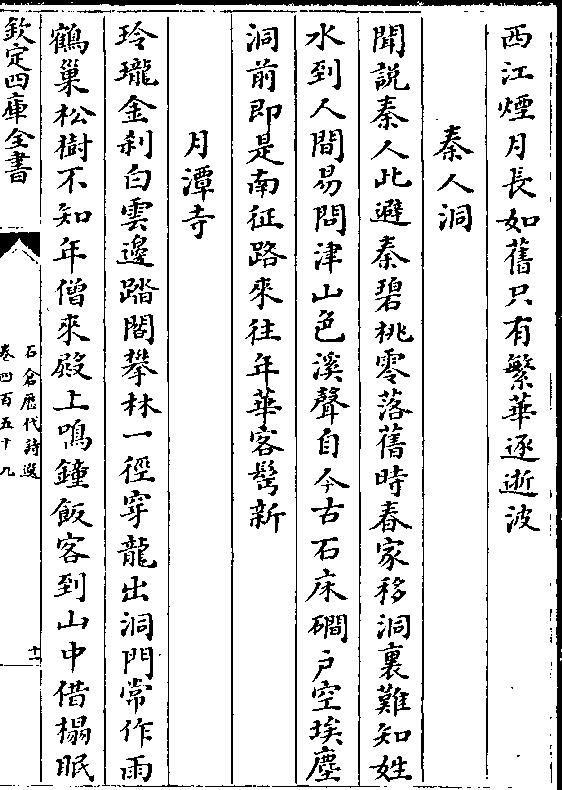 西江煙月長如舊只有繁華逐逝波
秦人洞
聞說秦人此避秦碧桃零落舊時春家移洞裏難知姓
水到人間易問津山色溪聲自今古石床磵戶空埃塵
洞前即是南征路來往年華客髩新
月潭寺
玲瓏金刹白雲邊踏閣攀林一徑穿龍出洞門常作雨
鶴巢松樹不知年僧來殿上鳴鐘飯客到山中借榻眠
欽定四庫全書
石倉歴代詩選
卷四百五十九
十一